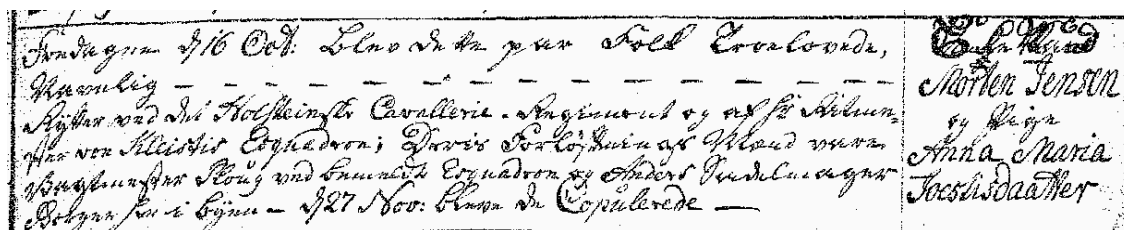 Fredagen d 16 Oct: blev dette par Folk Troelovede,
Navnlig — — — — — — — — — — — — —
Rytter ved det Holsteinske Cavallerie-Regiment og af Hr Ritme-
ster von Kleistis Esquadron; Deris Forløftnings Mænd vare
Vagtmester Skoug ved bemelte Esquadron og Anders Sadelmager
Borger her i byen — d 27 Nov: bleve de Copulerede —
Morten Jensen
og Pige
Anna Maria
Joestisdaatter